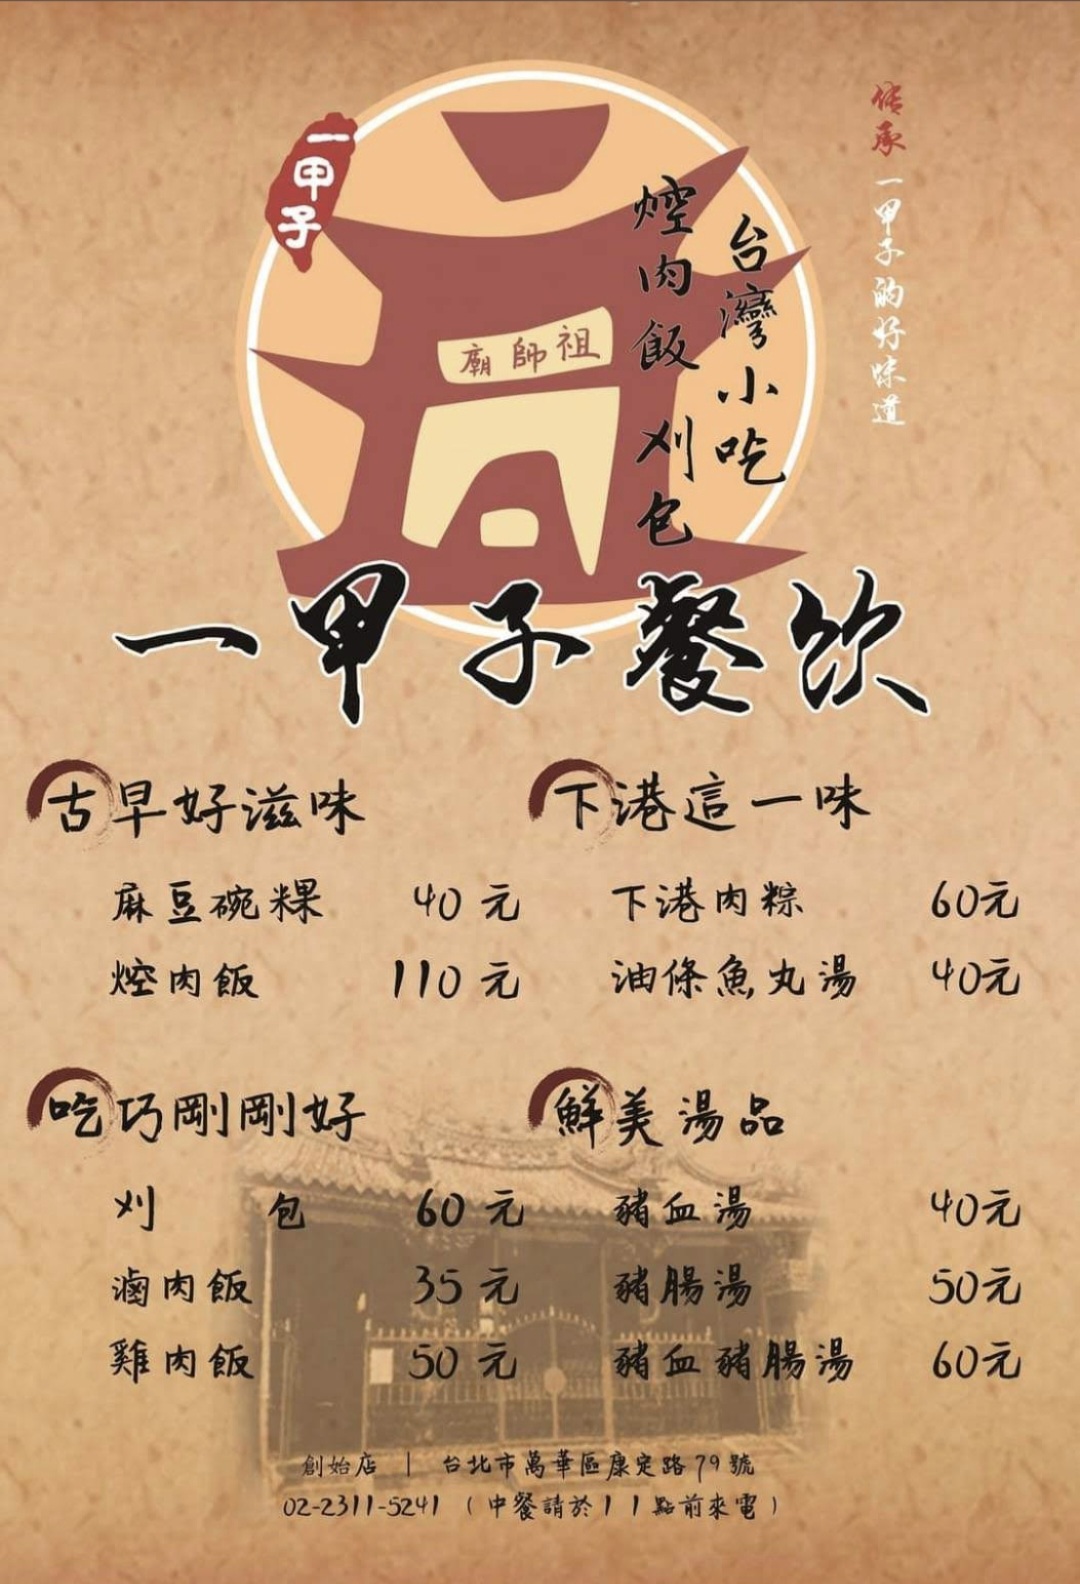 傳承一甲子的好味道
一甲子
台灣小吃
焢肉飯刈包
廟師祖
一甲子餐飲
古早好滋味
麻豆碗粿 40元
焢肉飯 110元
下港這一味
下港肉粽 60元
油條魚丸湯 40元
吃巧剛剛好
刈包 60元
滷肉飯 35元
雞肉飯 50元
鮮美湯品
豬血湯 40元
豬腸湯 50元
豬血豬腸湯 60元
創始店 | 台北市萬華區康定路79號
02-2311-5241 (中餐請於11點前來電)